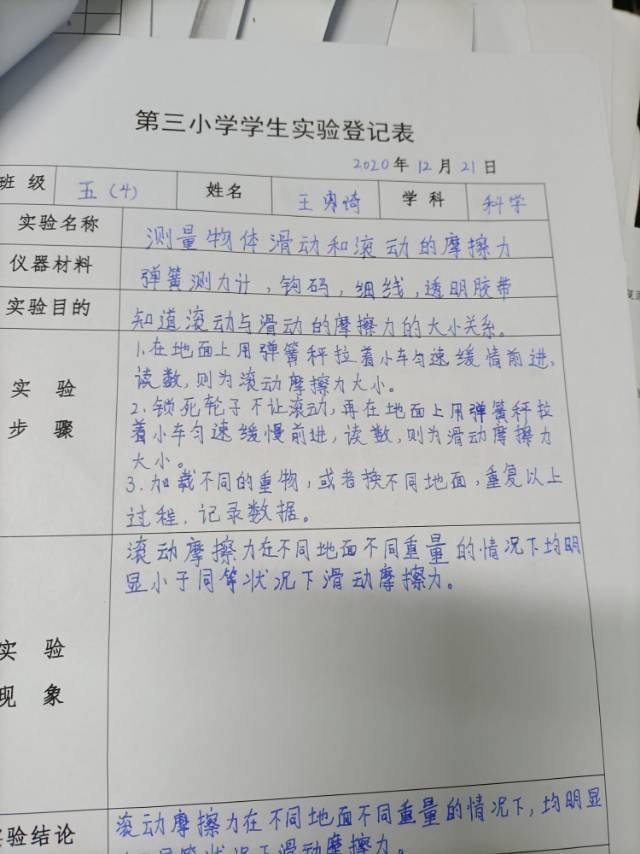 第三小学学生实验登记表
2020年12月21日
班级 五(4) 姓名 王 琦 学科 科学
实验名称 测量物体滑动和滚动的摩擦力
仪器材料 弹簧测力计，钩码，细线，透明胶带
实验目的 知道滚动与滑动的摩擦力的大小关系。
实验步骤
1.在地面上用弹簧秤拉着小车匀速缓情前进，
读数，则为滚动摩擦力大小。
2.锁死轮子不让滚动，再在地面上用弹簧秤拉
着小车匀速缓慢前进，读数，则为滑动摩擦力
大小。
3.加载不同的重物，或者换不同地面，重复以上
过程，记录数据。
实验现象
滚动摩擦力在不同地面不同重量的情况下均明
显小于同等状况下滑动摩擦力。
实验结论 滚动摩擦力在不同地面不同重量的情况下，均明显
同等状况下滑动摩擦力。